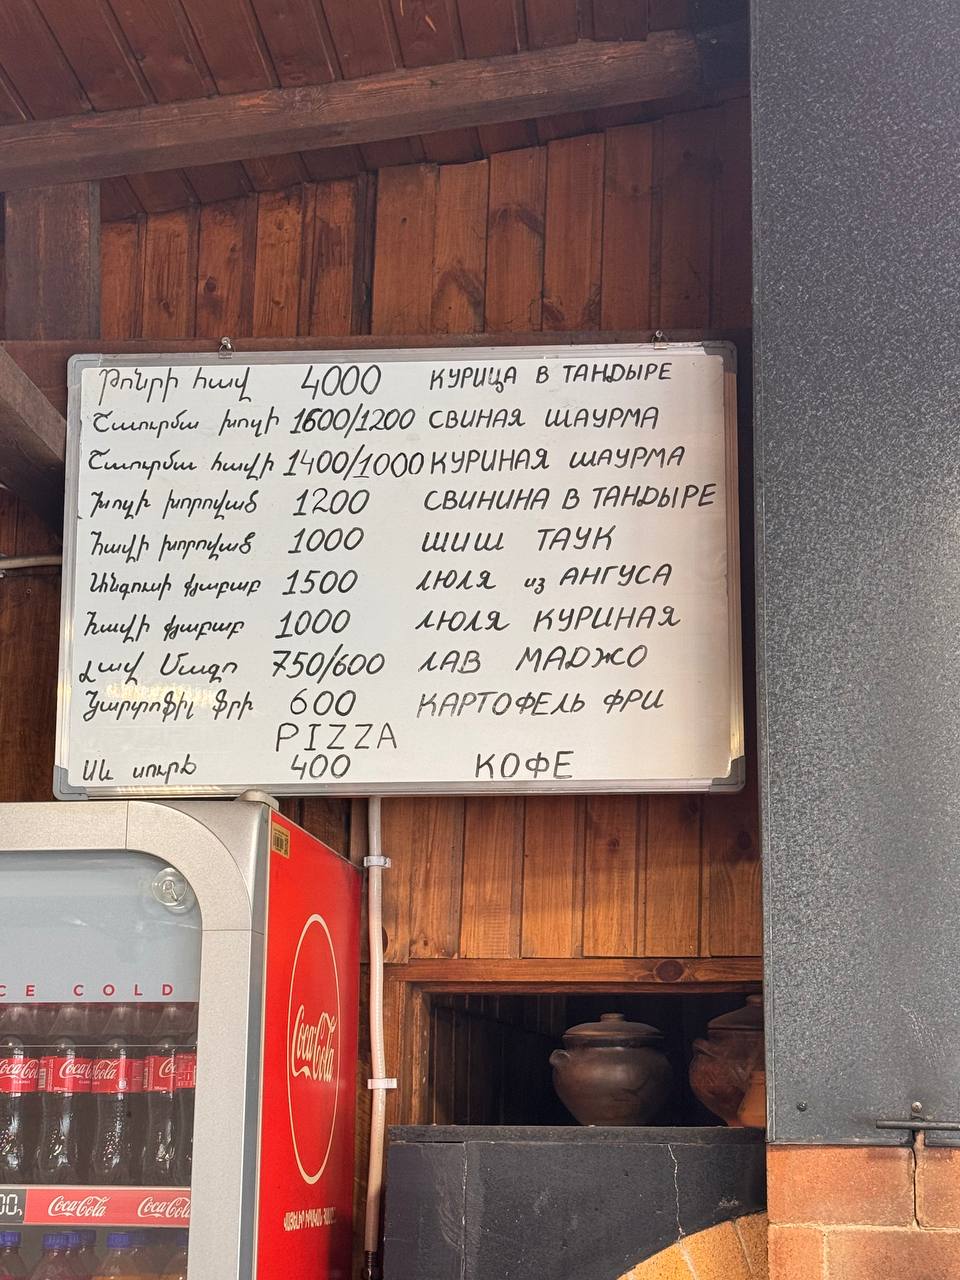 Թոնրի հավ 4000 КУРИЦА В ТАНДЫРЕ
Շաուրմա խոզի 1600/1200 СВИНАЯ ШАУРМА
Շաուրմա հավի 1400/1000 КУРИНАЯ ШАУРМА
Խոզի խորոված 1200 СВИНИНА В ТАНДЫРЕ
Հավի խորոված 1000 ШИШ ТАУК
Անգուսի քյաբաբ 1500 ЛЮЛЯ из АНГУСА
Հավի քյաբաբ 1000 ЛЮЛЯ КУРИНАЯ
Լավ Մաջո 750/600 ЛАВ МАДЖО
Կարտոֆիլ ֆրի 600 КАРТОФЕЛЬ ФРИ
PIZZA
Սև սուրճ 400 КОФЕ
CE COLD
Coca-Cola
Coca-Cola Coca-Cola
Coca-Cola Coca-Cola